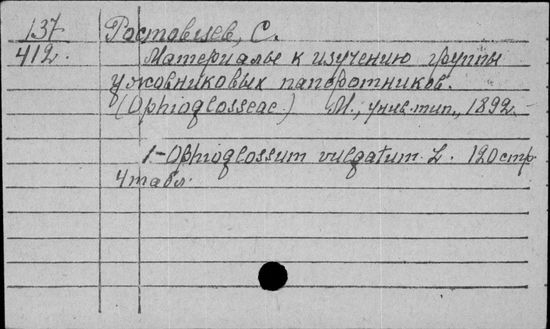 137 Ростовцев, С.
412. Материалы к изучению группы
ужовниковых папоротников.
(Ophioglosseae.) М., унив. тип., 1892.
1-Ophioglossum vulgatum. L. 120 стр.
4 табл.